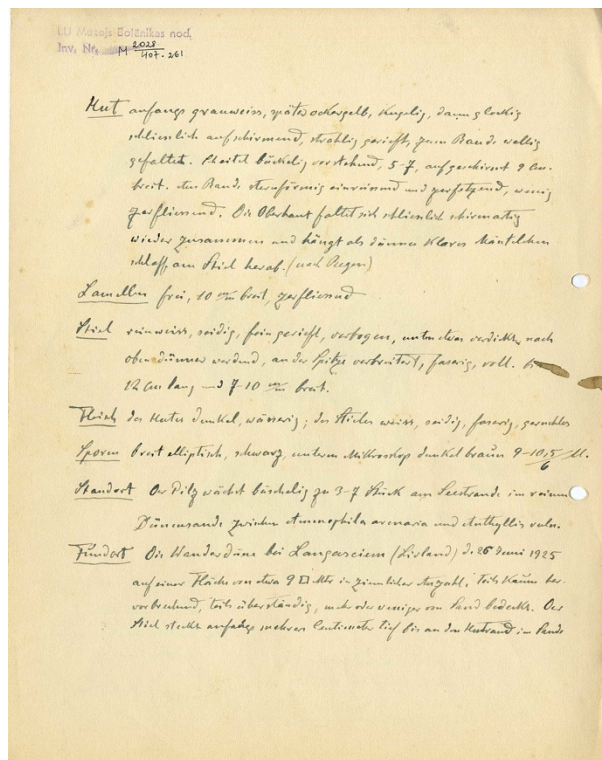 LU Mazajs Botānikas nod.
Inv. Nr. M 2028/407-261
Hut anfangs grauweiss, später ockergelb, kugelig, dann glockig
schliesslich aufschirmend, strahlig gerieft, zum Rande wellig
gefaltet. Scheitel bückelig vorstehend, 5-7, aufgeschirmt 9 cm.
breit. Am Rande sternförmig einreissend und zerfetzend, wenig
zerfliessend. Die Oberhaut faltet sich schliesslich schirmartig
wieder zusammen und hängt als dünnes klares Mäntelchen
schlaff am Stiel herab. (nach Regen)
Lamellen frei, 10 mm breit, zerfliessend
Stiel reinweiss, seidig, fein gerieft, verbogen, unten etwas verdickt, nach
oben dünner werdend, an der Spitze verbreitert, faserig, voll.
12 cm lang und 7-10 mm breit.
Fleisch des Hutes dunkel, wässerig; des Stieles weiss, seidig, faserig, geruchlos
Sporen breit elliptisch, schwarz, unterm Mikroskop dunkelbraun 9-10,5/6 M.
Standort Der Pilz wächst büschelig zu 3-7 Stück am Seestrande im reinen
Dünensande zwischen Ammophila arenaria und Anthyllis vuln.
Fundort Die Wanderdüne bei Langasciem (Livland) d. 26 Juni 1925
auf einer Fläche von etwa 9 □ Mtr in ziemlicher Anzahl, teils kaum her-
vorbrechend, teils überständig, mehr oder weniger von Sand bedeckt. Der
Stiel steckte anfangs mehrere Centimeter tief bis an den Hutrand im Sande